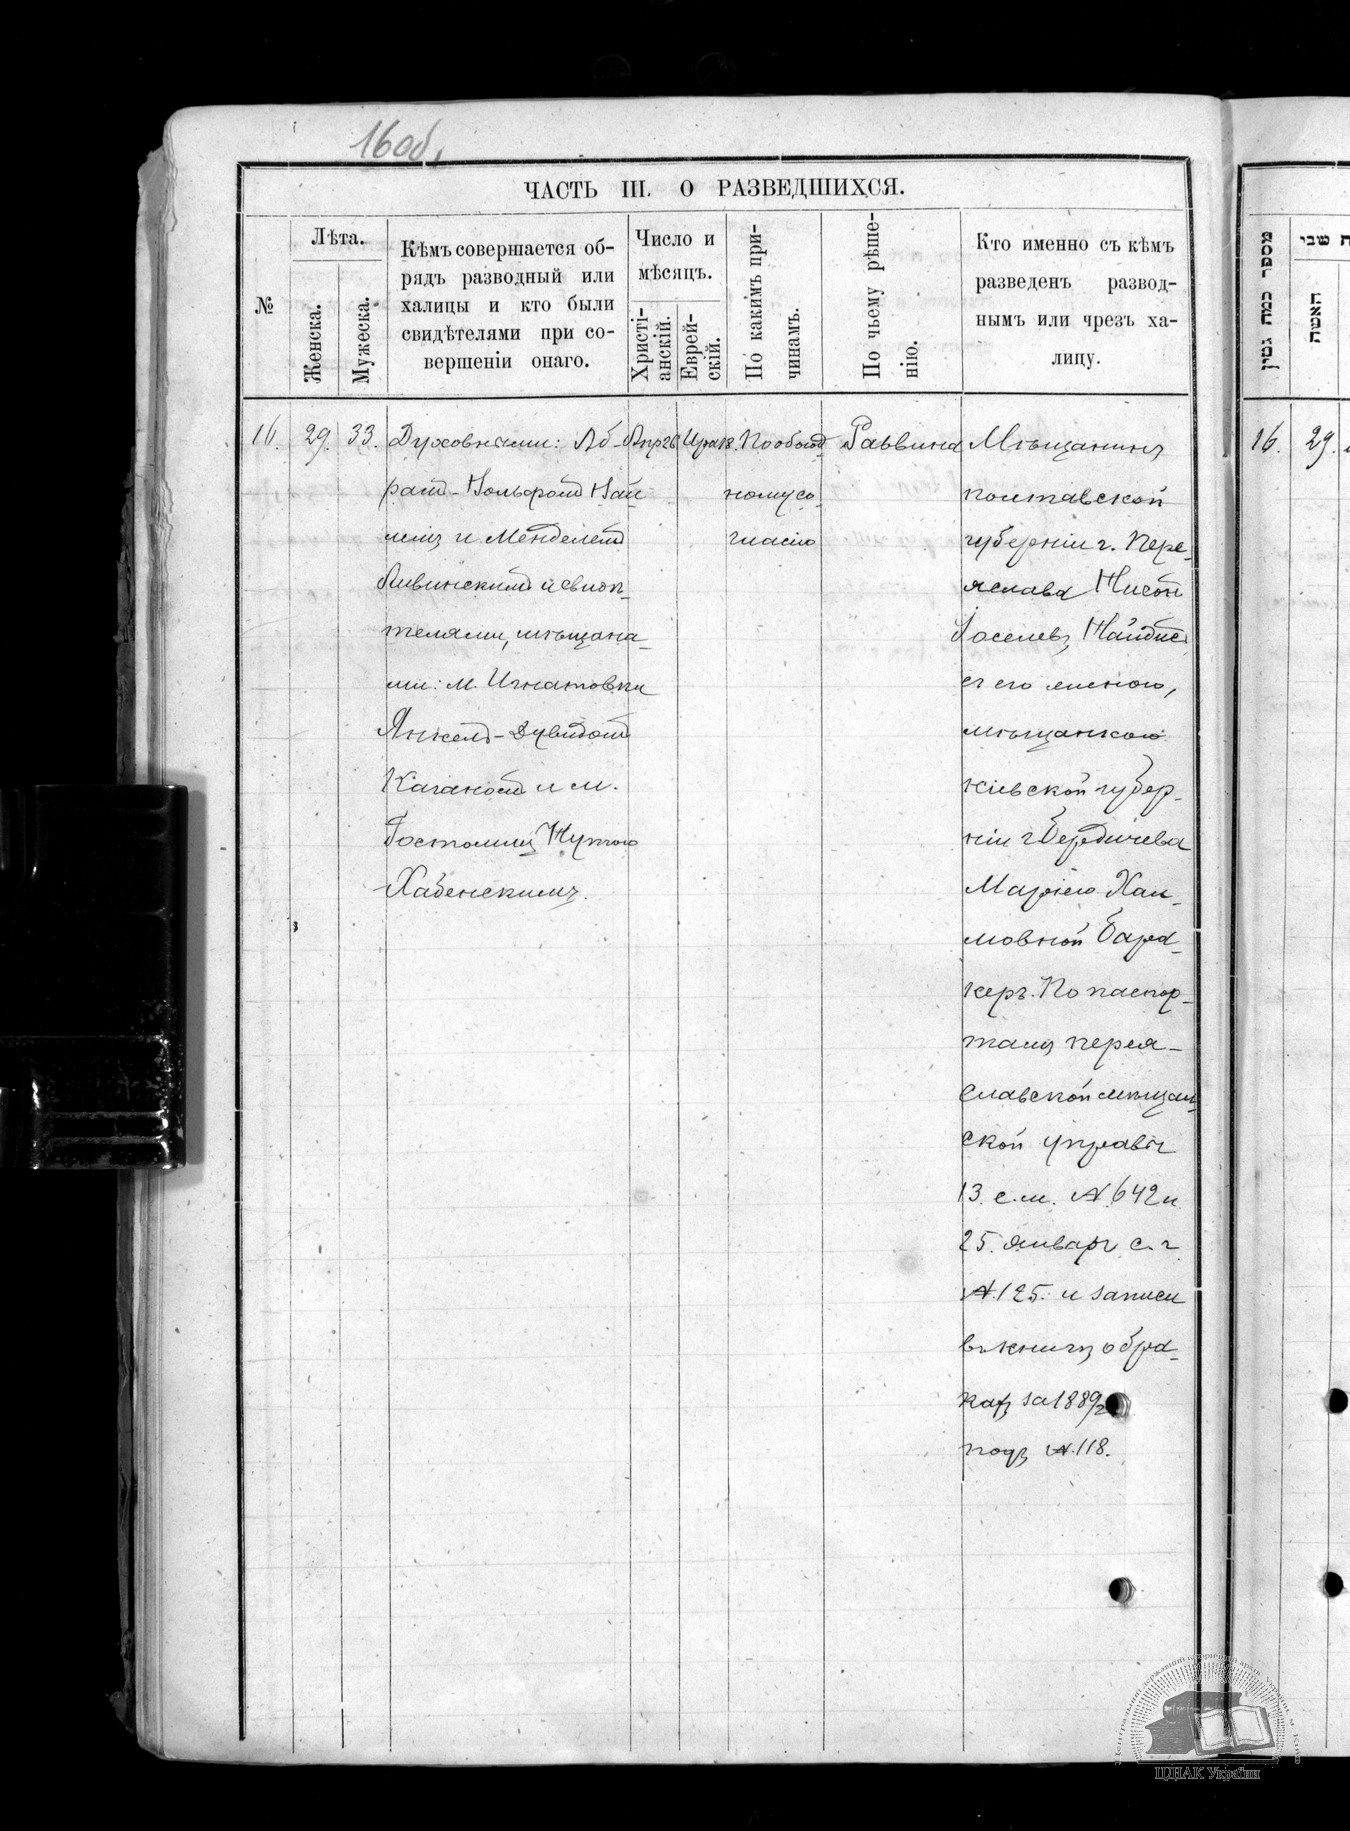 160б.
ЧАСТЬ III. О РАЗВЕДШИХСЯ.
№
Лѣта.
Женска.
Мужеска.
Кѣмъ совершается об-
рядъ разводный или
халицы и кто были
свидѣтелями при со-
вершеніи онаго.
Число и
мѣсяцъ.
Христі-
анскій.
Еврей-
скій.
По какимъ при-
чинамъ.
По чьему рѣше-
нію.
Кто именно съ кѣмъ
разведенъ развод-
нымъ или чрезъ ха-
лицу.
16.
29.
33.
Духовными: Аб-
рам-Вольфомъ
и Менделемъ
Ливинскимъ и свидѣ-
телями, мѣщана-
ми: м. Игнатовки
Янкель-Дувидомъ
Каганомъ и м.
Гостомля
Хабенскимъ.
Апр 26.
Ира 18.
По обоюд-
ному со-
гласію
Раввина
Мѣщанинъ
полтавской
губерніи г. Пере-
яслава Нисон
Іоселевъ
съ его женою,
мѣщанкою
кіевской губер-
ніи г. Бердичева
Маріею Хаи-
мовной Бара-
керъ. По паспор-
тамъ перея-
славской мѣщан-
ской управы
13. с. м. № 642 и
25. января с. г.
№ 125. и записи
въ книгѣ о бра-
кахъ за 1889/2
подъ № 118.
מספר כמה גטין
האשה
16.
29.
ЦДІАК України